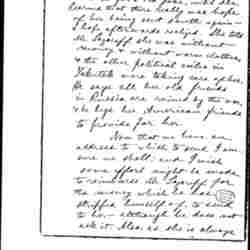 learned that there really was hope
of her being sent south again –
I hope afterwards realized. She told
Mr Lazareff she was without
money & without warm clothes
& the other political exiles in
Yakutsk were taking care of her.
He says all her old friends
in Russia are ruined by the war
& he begs her American friends
to provide for her.
Now that we have an
address to which to send I am
sure we shall, and I wish
some effort might be made
to reimburse Mr Lazareff for
the money which he has
stripped himself of, to send
to her – although he does not
ask it. Also, as she is always